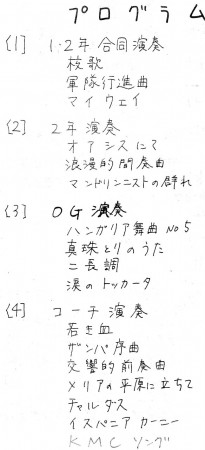 プログラム
{1} 1・2年 合同演奏
校歌
軍隊行進曲
マイ ウェイ
{2} 2年 演奏
オアシスにて
浪漫的間奏曲
マンドリンニストの群れ
{3} OG演奏
ハンガリア舞曲 No5
真珠とりのうた
ニ長調
涙のトッカータ
{4} コーチ 演奏
若き血
ザンパ序曲
交響的前奏曲
メリアの平原に立ちて
チャルダス
イスパニア カーニー
KMC ソング